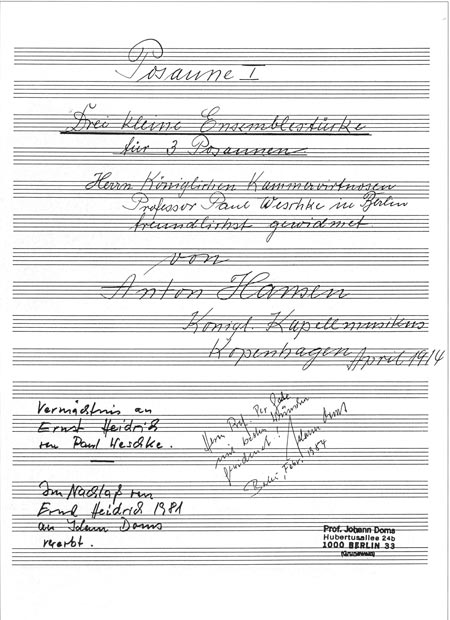 Posaune I
Drei kleine Ensemblestücke
für 3 Posaunen
Herrn Königlichen Kammervirtuosen
Professor Paul Weschke in Berlin
freundlichst gewidmet
von
Anton Hansen
Königl. Kapellmusikus
Kopenhagen April 1914
Vermächtnis an
Ernst Heidrich
von Paul Weschke.
Im Nachlaß von
Ernst Heidrich 1981
an Johann Doms
vererbt.
Herrn Prof. Per Gade
mit besten Wünschen
Johann Doms
Berlin, Febr. 1984
Prof. Johann Doms
Hubertusallee 24b
1000 BERLIN 33